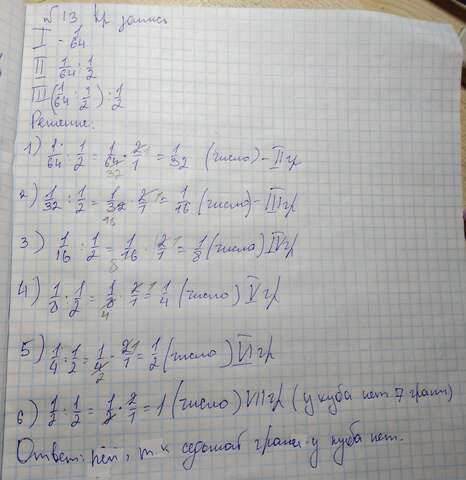 № 13 кр запись
I - 1/64
II 1/64 : 1/2
III (1/64 : 1/2) : 1/2
Решение.
1) 1/64 : 1/2 = 1/64 · 2/1 = 1/32 (число) - II гр
32
2) 1/32 : 1/2 = 1/32 · 2/1 = 1/16 (число) - III гр
16
3) 1/16 : 1/2 = 1/16 · 2/1 = 1/8 (число) IV гр
8
4) 1/8 : 1/2 = 1/8 · 2/1 = 1/4 (число) V гр
4
5) 1/4 : 1/2 = 1/4 · 2/1 = 1/2 (число) VI гр
2
6) 1/2 : 1/2 = 1/2 · 2/1 = 1 (число) VII гр (у куба нет 7 грани)
Ответ: нет, т к седьмой грани у куба нет.